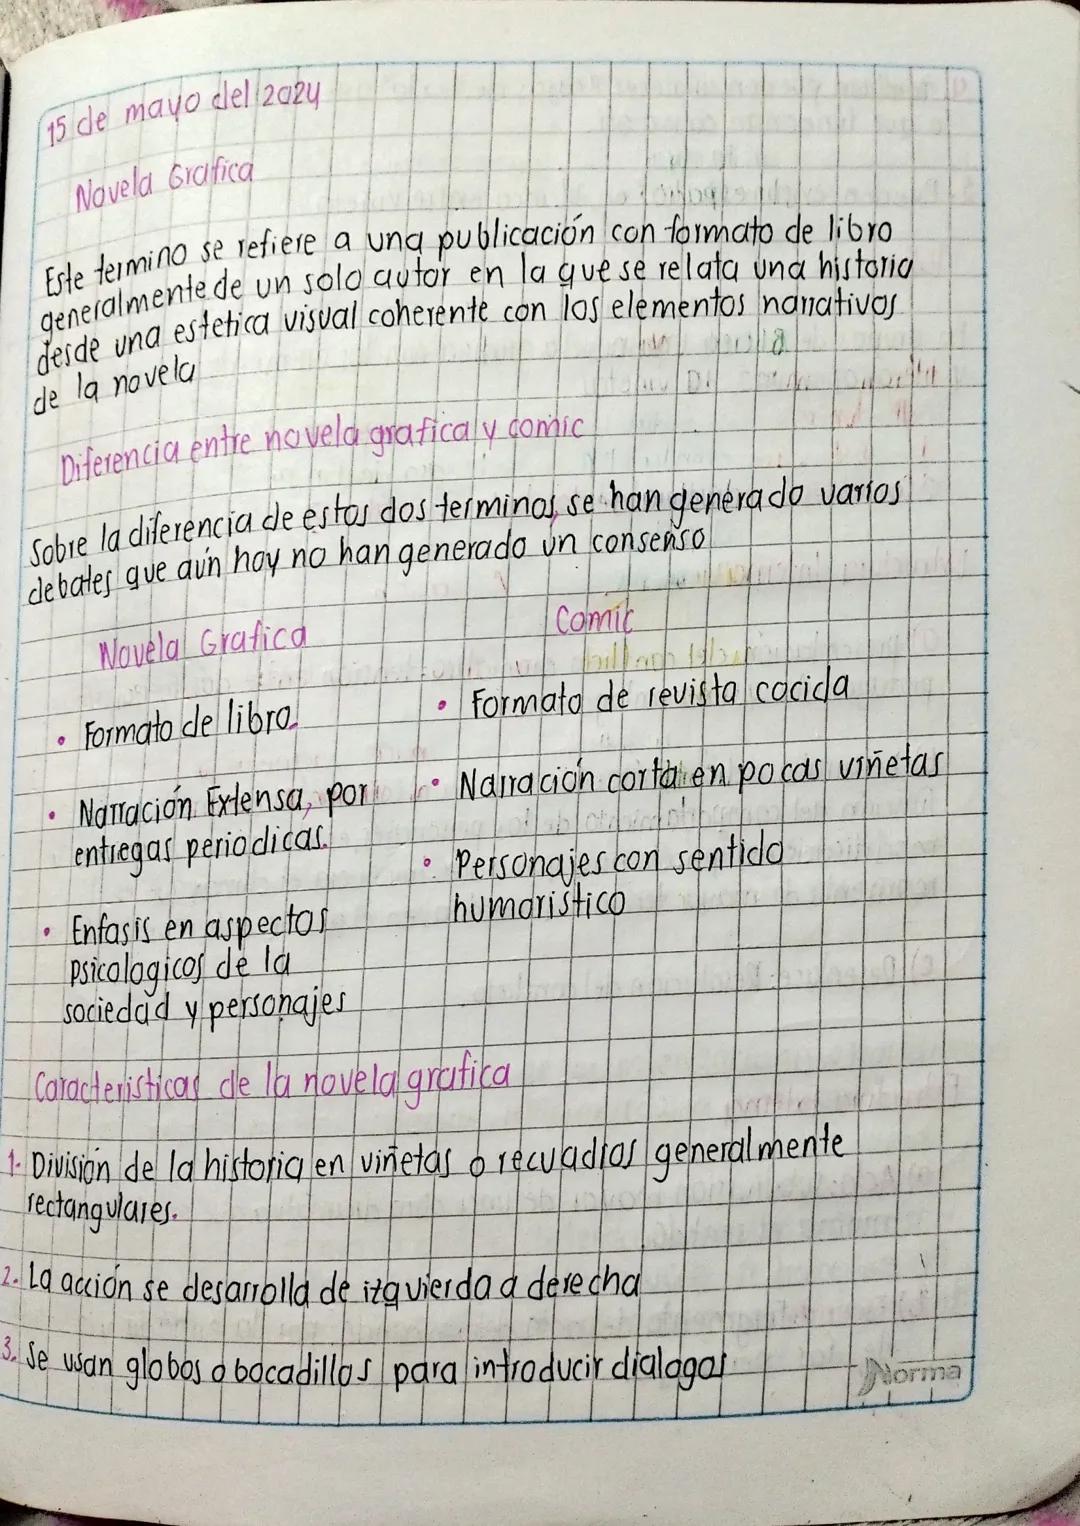 15 de mayo del 2024
Novela Grafica
Este termino se refiere a una publicación con formato de libro
generalmente de un solo autor en la que se relata una historia
desde una estetica visual coherente con los elementos narrativos
de la novela
Diferencia entre novela grafica y comic
Sobre la diferencia de estos dos terminos, se han generado varios
debates que aún hoy no han generado un consenso
Novela Grafica
Comic
• Formato de libro.
• Formato de revista cocida
• Narración Extensa, por
entregas periodicas.
• Narración corta en pocas viñetas
• Personajes con sentido
humoristico
• Enfasis en aspectos
psicologicos de la
sociedad y personajes
Caracteristicas de la novela grafica
1. División de la historia en viñetas o recuadros generalmente
rectangulares.
2. La acción se desarrolla de izquierda a derecha
3. Se usan globos o bocadillos para introducir dialogos
Norma